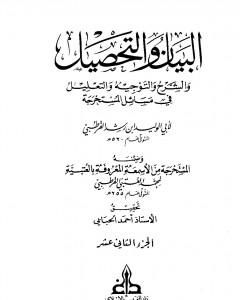 البيان والتحصيل
والشرح والتوجيه والتعليل
في مسائل المستخرجة
لأبي الوليد ابن رشد القرطبي
المتوفى عام ٥٢٠ هـ
وضمنه
المستخرجة من الأسمعة المعروفة بالعتبية
لمحمد العتبي القرطبي
المتوفى عام ٢٥٥ هـ
تحقيق
الأستاذ أحمد الحبابي
الجزء الثاني عشر